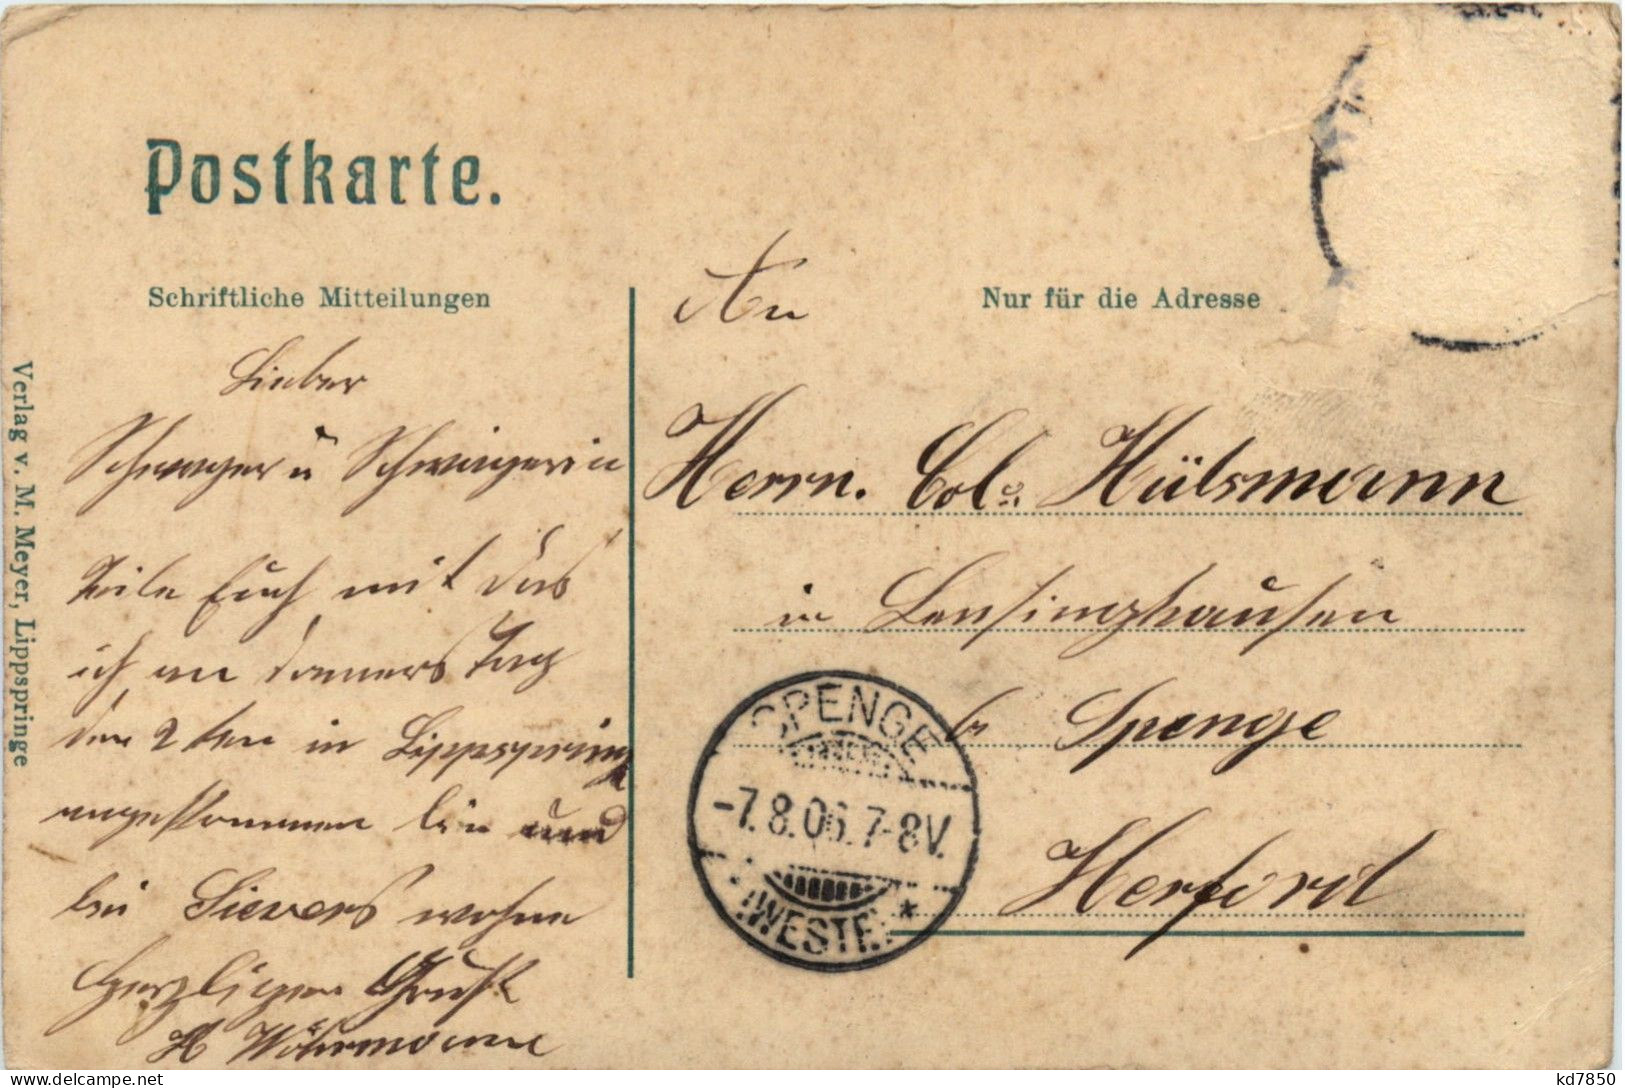 Postkarte.
Schriftliche Mitteilungen
Nur für die Adresse
Verlag v. M. Meyer, Lippspringe
Lieber
Schwager u Schwägerin
teile Euch mit das
ich am Donners Tag
den 2ten in Lippspringe
angekommen bin und
bei Sievers wohne
Herzlichen Gruß
H Wöhrmann
An
Herrn. Col. Hülsmann
in Lensinghausen
b Spenge
Herford
SPENGE
-7.8.06.7-8V.
(WESTF.)
kd7850